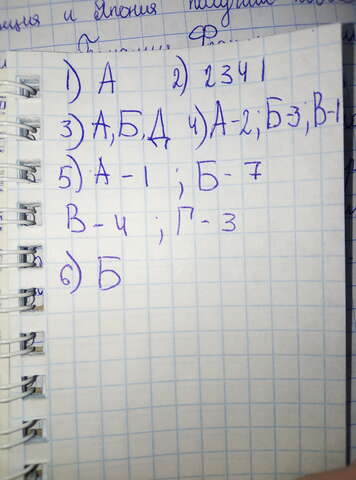 и Япония получил
1) А 2) 2341
3) А, Б, Д 4) А-2; Б-3; В-1
5) А - 1 ; Б - 7
В - 4 ; Г - 3
6) Б